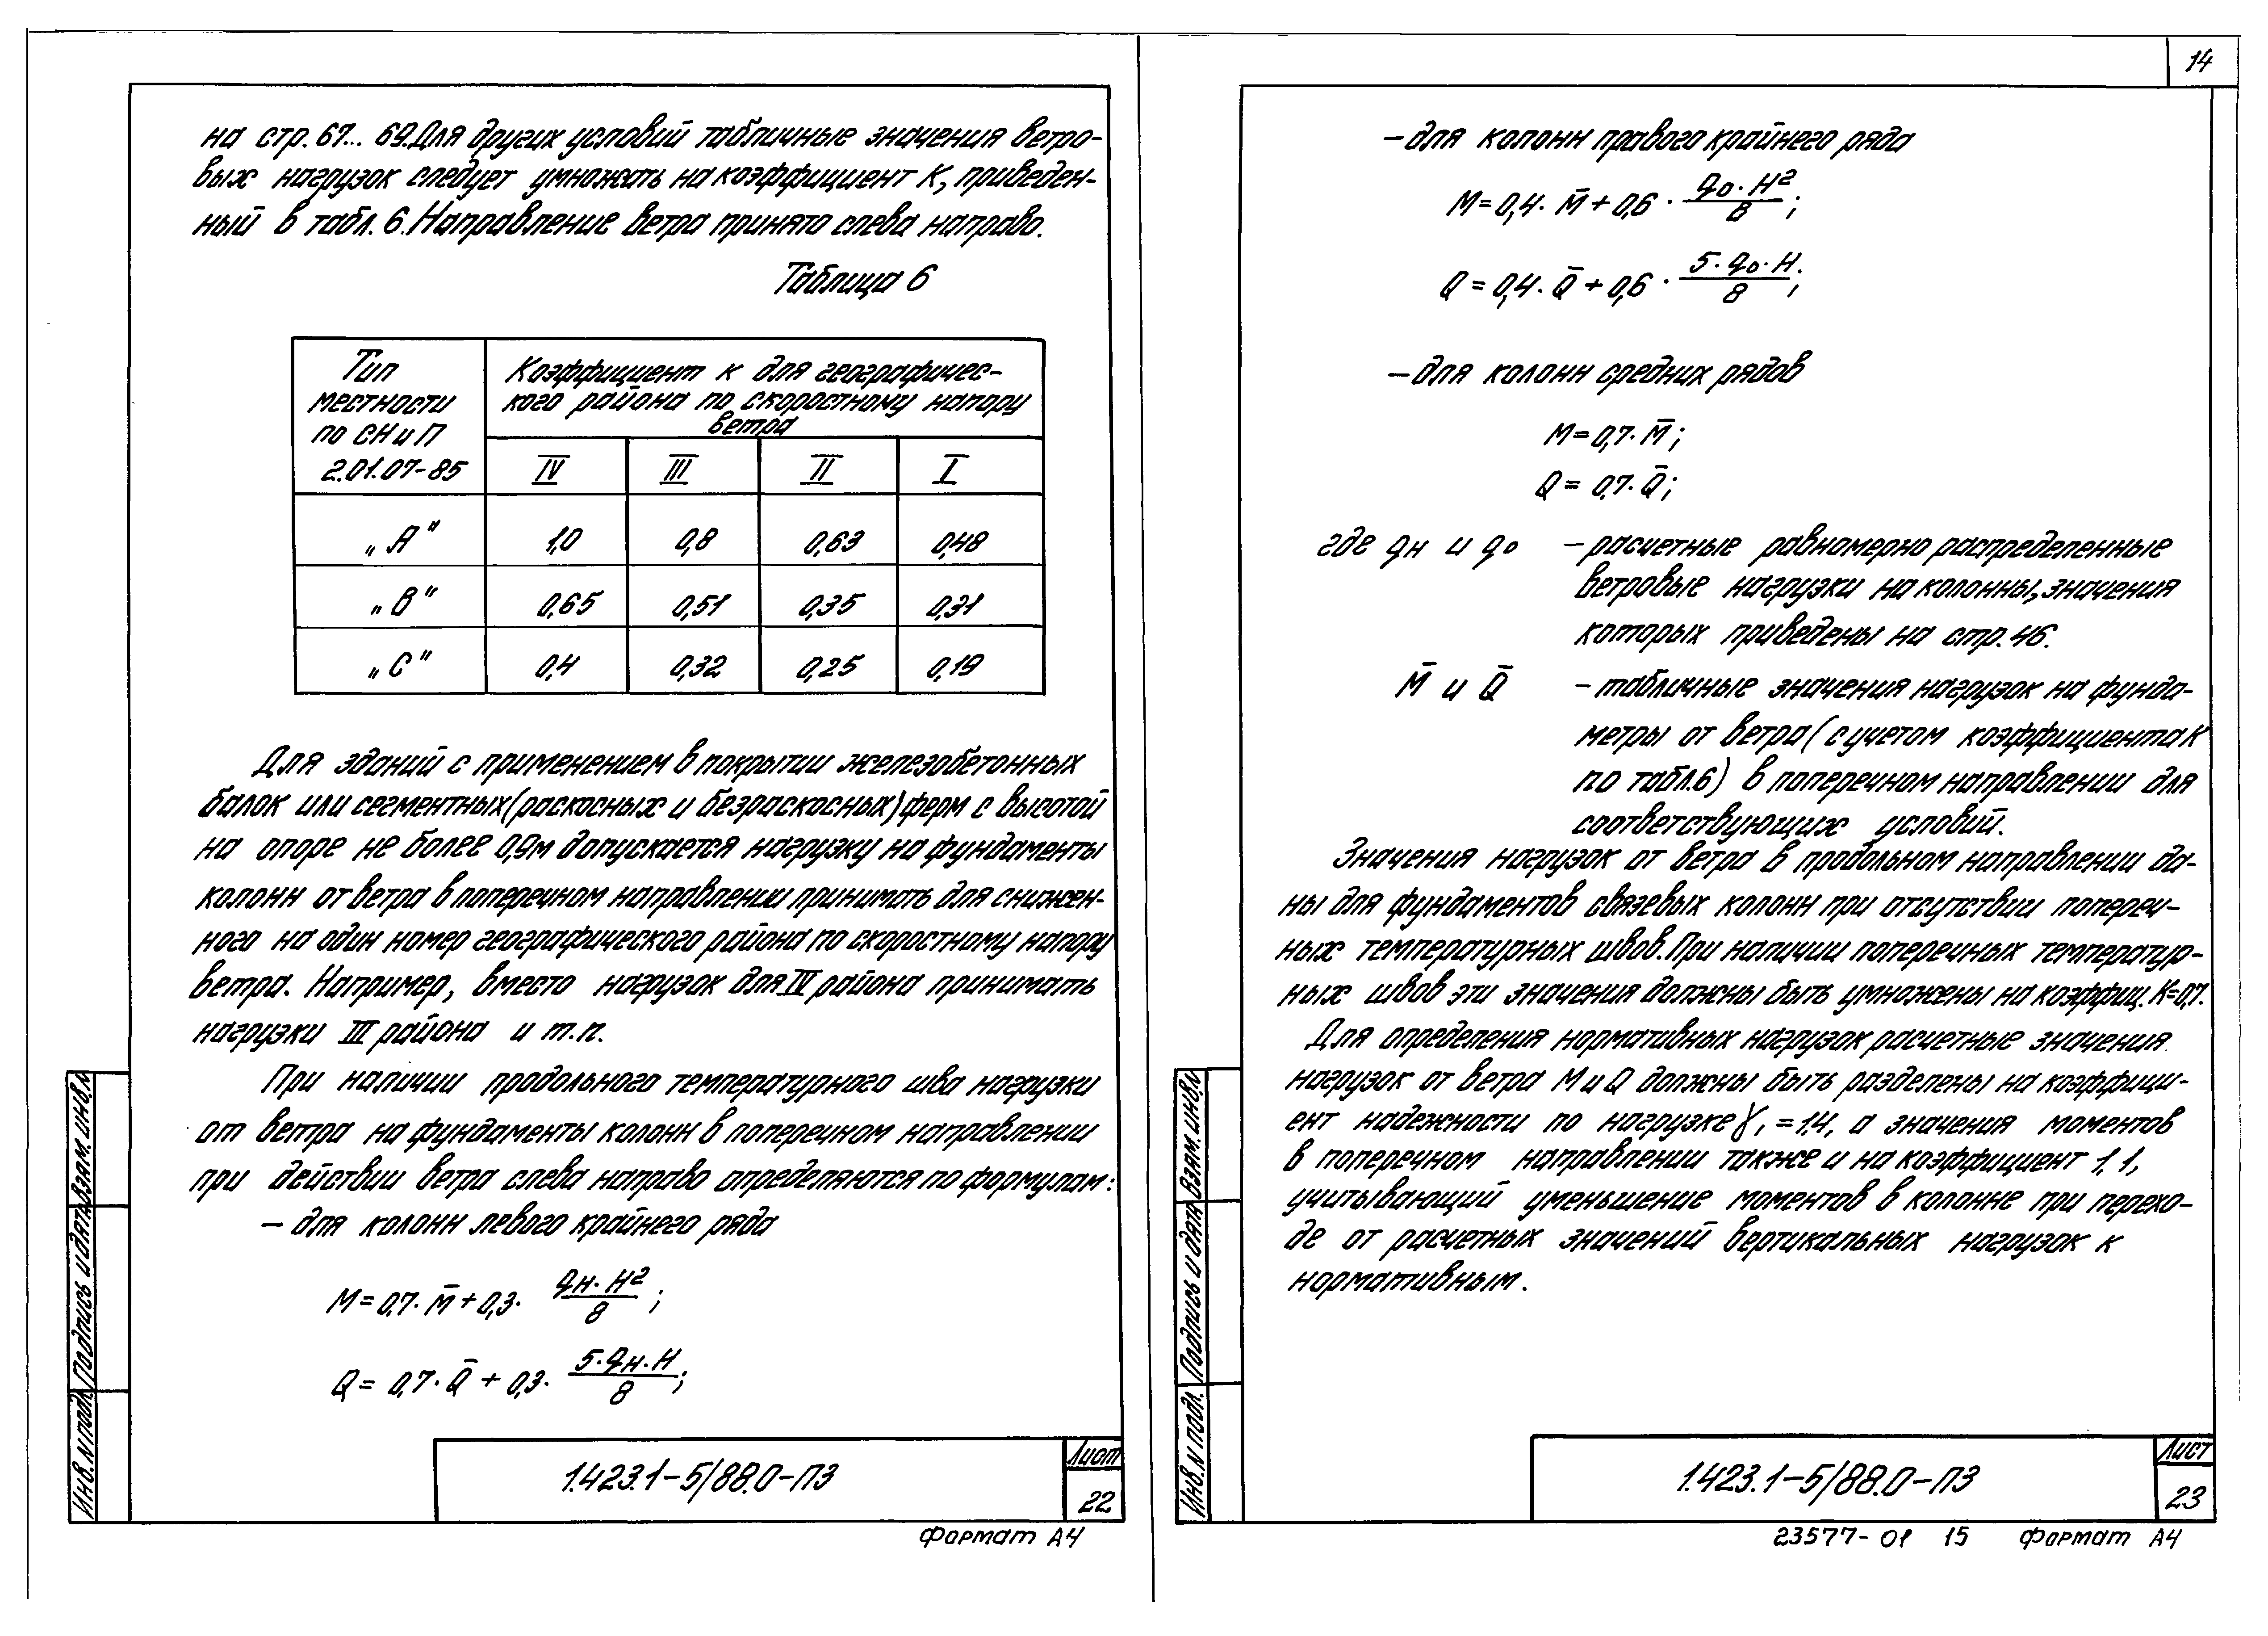 на стр. 67... 69. Для других условий табличные значения ветро-
вых нагрузок следует умножать на коэффициент К, приведен-
ный в табл. 6. Направление ветра принято слева направо.
Таблица 6
Тип местности по СНиП 2.01.07-85
Коэффициент к для географичес-
кого района по скоростному напору
ветра
IV III II I
„А“ 1,0 0,8 0,63 0,48
„В“ 0,65 0,51 0,35 0,31
„С“ 0,4 0,32 0,25 0,19
Для зданий с применением в покрытии железобетонных
балок или сегментных (раскосных и безраскосных) ферм с высотой
на опоре не более 0,9м допускается нагрузку на фундаменты
колонн от ветра в поперечном направлении принимать для снижен-
ного на один номер географического района по скоростному напору
ветра. Например, вместо нагрузок для IV района принимать
нагрузки III района и т.п.
При наличии продольного температурного шва нагрузки
от ветра на фундаменты колонн в поперечном направлении
при действии ветра слева направо определяются по формулам:
— для колонн левого крайнего ряда
M = 0,7 · M̄ + 0,3 · qн · H² / 8 ;
Q = 0,7 · Q̄ + 0,3 · 5 · qн · H / 8 ;
1.423.1-5/88.0-ПЗ
Лист
22
Формат А4
Инв. N подл. Подпись и дата Взам. инв. N
14
— для колонн правого крайнего ряда
M = 0,4 · M̄ + 0,6 · qо · H² / 8 ;
Q = 0,4 · Q̄ + 0,6 · 5 · qо · H / 8 ;
— для колонн средних рядов
M = 0,7 · M̄ ;
Q = 0,7 · Q̄ ;
где qн и qо — расчетные равномерно распределенные
ветровые нагрузки на колонны, значения
которых приведены на стр. 46.
M̄ и Q̄ — табличные значения нагрузок на фунда-
метры от ветра (с учетом коэффициента К
по табл.6) в поперечном направлении для
соответствующих условий.
Значения нагрузок от ветра в продольном направлении да-
ны для фундаментов связевых колонн при отсутствии попереч-
ных температурных швов. При наличии поперечных температур-
ных швов эти значения должны быть умножены на коэффиц. К=0,7.
Для определения нормативных нагрузок расчетные значения
нагрузок от ветра М и Q должны быть разделены на коэффици-
ент надежности по нагрузке γ₁ = 1.4, а значения моментов
в поперечном направлении также и на коэффициент 1.1,
учитывающий уменьшение моментов в колонне при перехо-
де от расчетных значений вертикальных нагрузок к
нормативным.
1.423.1-5/88.0-ПЗ
Лист
23
23577-01 15 Формат А4
Инв. N подл. Подпись и дата Взам. инв. N